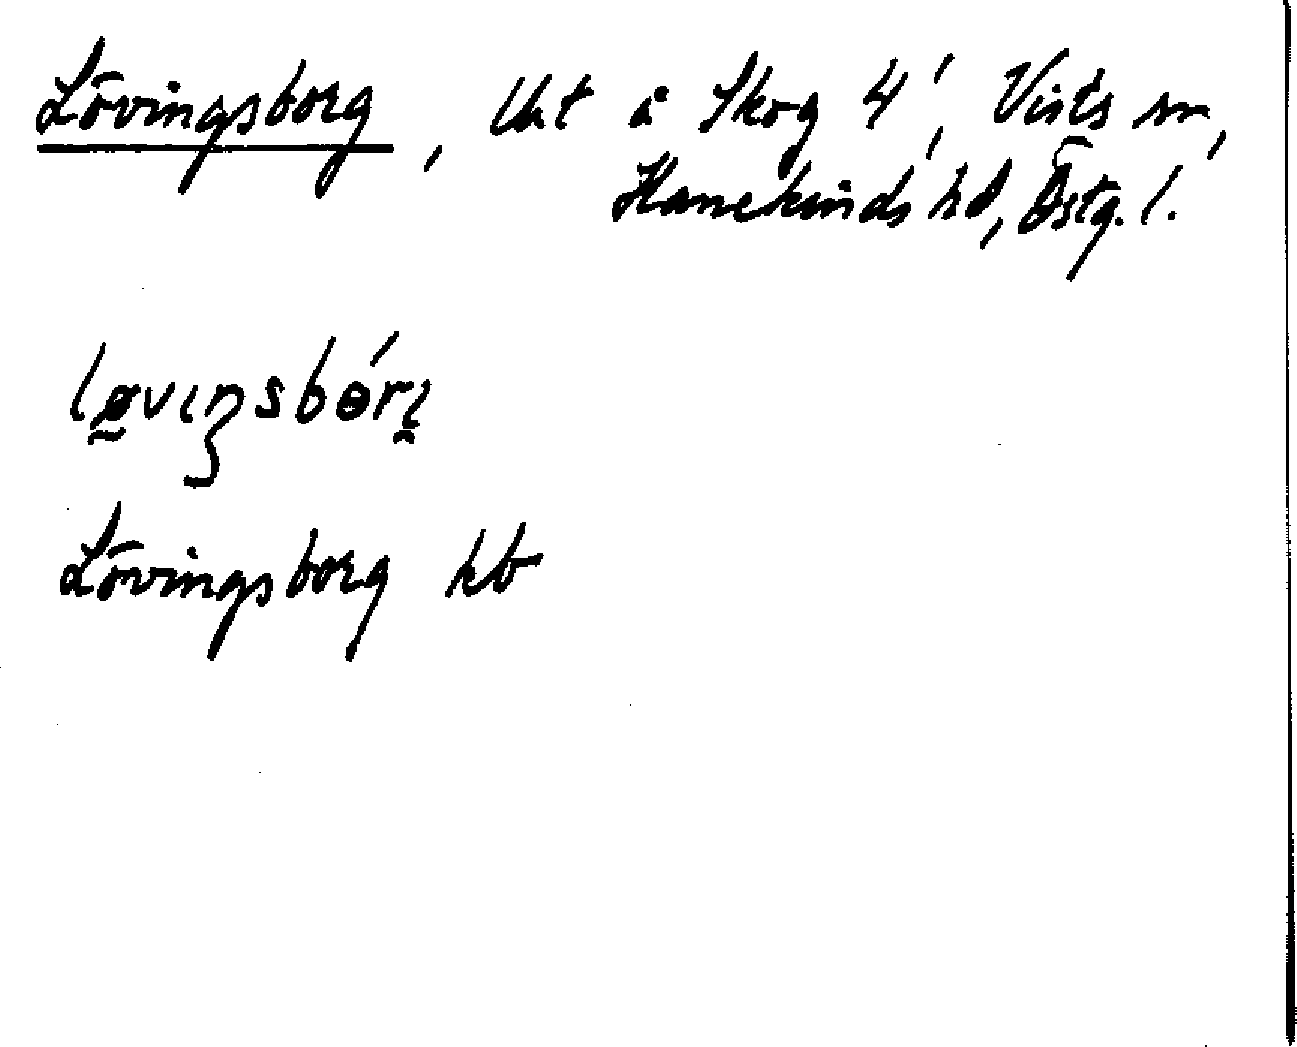 Lövingsborg, Uht å Skog 4', Vists sn,
Hanekinds hd, Östg. l.
løvıŋsbórı̯
Lövingsborg kb